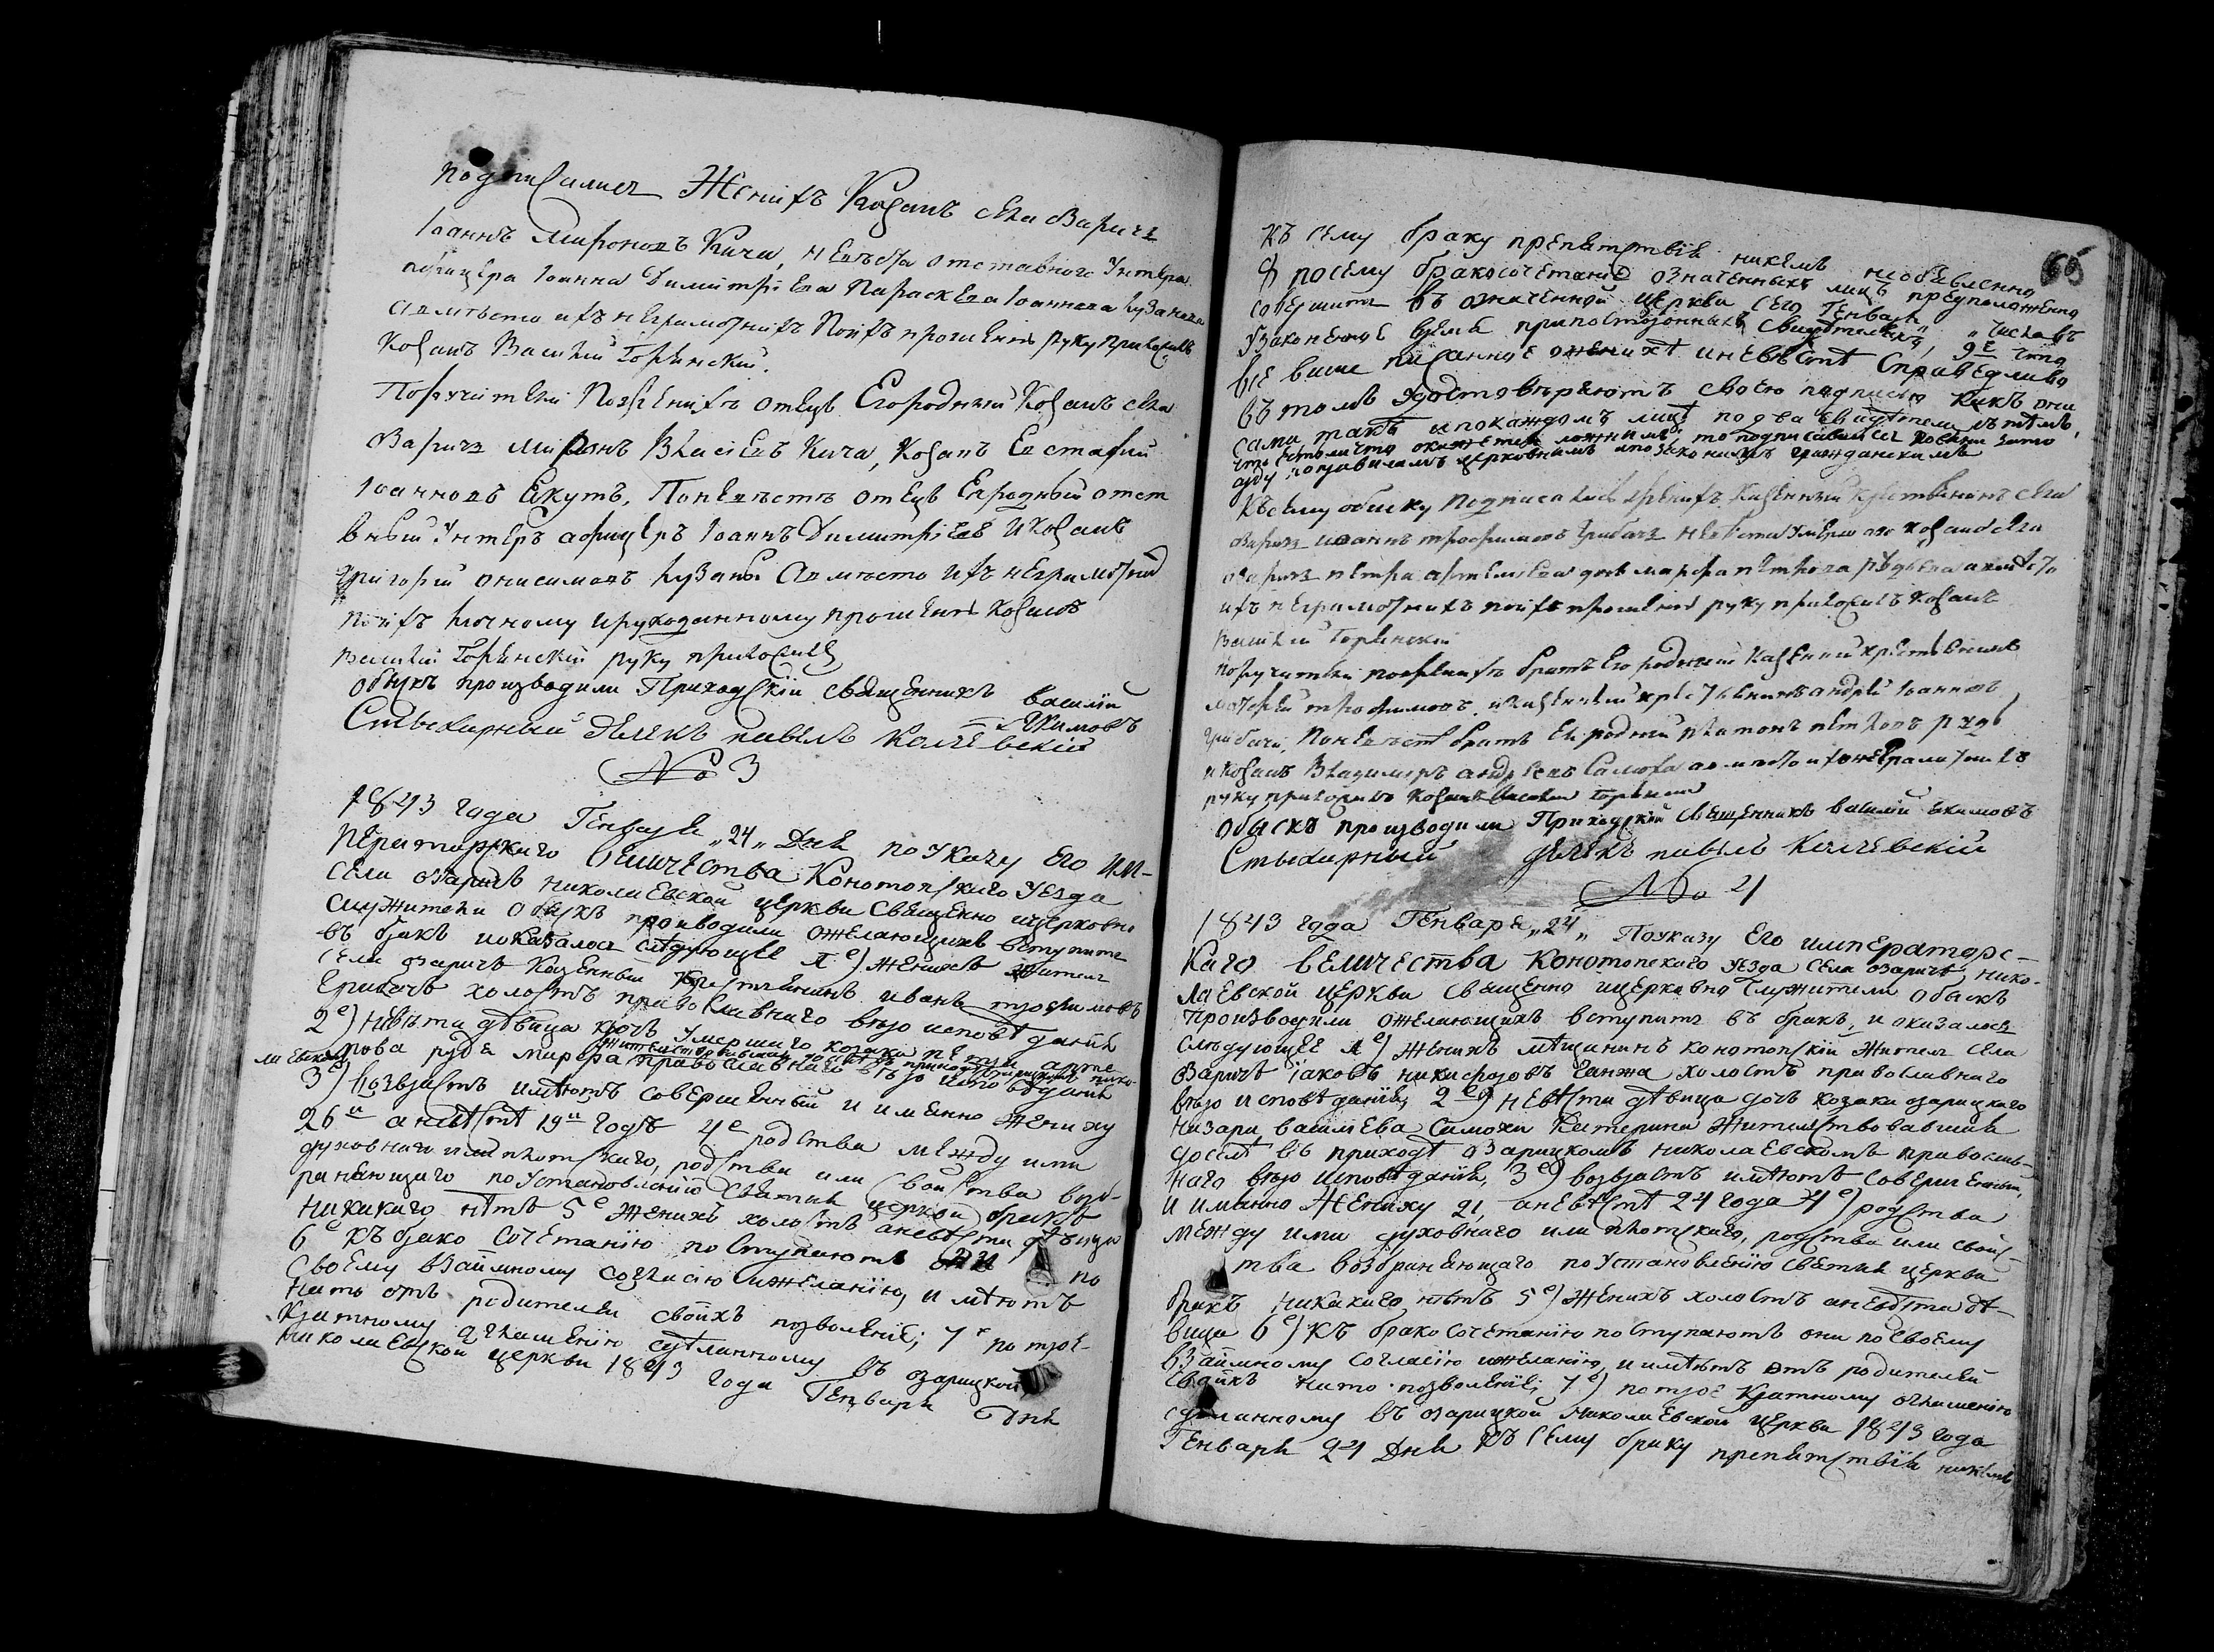 подписались Женихъ Козакъ села Озаричъ
Іоаннъ Мироновъ Кича, невѣста отставнаго Унтера
афицера Іоанна Димитріева Параскева Іоаннова
Авмѣсто ихъ неграмотнихъ Поихъ прошенію руку приложилъ
Козакъ Василій Горянскій.
Поручители Поженихѣ отецъ Его родный Козакъ села
Озаричъ Миронъ Власіевъ Кича, Козакъ Евстафій
Іоанновъ Якутъ, Поневѣстѣ отецъ Ея родный отста
вный Унтеръ афицеръ Іоаннъ Димитріевъ и Козакъ
Григорій Онисимовъ Авмѣсто ихъ неграмотних
поихъ личному ирукоданному прошенію Козакъ
Василій Горянскій руку приложилъ
Обыскъ производили Приходскій священникъ Василій
Екимовъ
Стыхарный Дьячекъ павелъ Калчевскій
No 3
1843 года Генваря „24„ Дня поуказу Его Им-
ператорскаго Величества Конотопскаго Уезда
Села Озаричъ николаевской церкви Священно ицерковно
служители Обыскъ производили ожелающихъ вступить
въ бракъ иоказалось слѣдующее 1е) женихъ житель
села озаричъ Казенный Крестьянинъ иванъ трофимовъ
Грибачъ холостъ православнаго вѣроисповѣданія
2е) невѣста дѣвица дочъ умершаго козака петра арте
жительствовавшая въ приходѣ озарицкомъ нико-
лаевском
мова руда марфа православнаго вѣроисповѣданія
3е) возрастъ имѣютъ совершенный и именно жениху
26и а невѣстѣ 19и годъ 4е родства между ими
духовнаго или плотскаго, родства или свойства возб-
раняющаго поустановленію Святыя церкви бракъ
никакаго нѣтъ 5е женихъ холостъ аневѣста дѣвица
6е къ брако сочетанію поступаютъ они по
своему взаимному согласію ижеланію, и имѣютъ
нато отъ родителей своихъ позволеніе; 7е по трое-
кратному оглашенію сдѣланному въ озарицкой
николаевской церкви 1843 года Генваря Дня
65
къ сему браку препятствія никемъ необявленно
8 посему бракосочетаніе означенныхъ лицъ предположенно
совершить въ означенной церкви сего Генваря „ „ числа въ
узаконенное время припостороннихъ свидѣтеляхъ, 9е что
все више писанное оженихѣ иневѣстѣ справедливо
въ томъ удостовѣряютъ своею подписью какъ они
сами такъ ипокаждомъ лицѣ по два свидѣтели съ тѣмъ,
что естьли что окажется ложнимъ, то подписавшиеся повинни зато
суду поправиламъ церковнимъ ипозаконамъ гражданскимъ
Къ сему обыску Подписались женихъ Казенный Крестьянинъ села
Озаричъ иоаннъ трофимовъ Грибачъ невѣста умершаго Козака села
Озаричъ петра артемиева дочъ марфа петрова авмѣсто
ихъ неграмотнихъ поихъ прошенію руку приложилъ Козакъ
Василій Горянскій
поручители поженихѣ братъ Его родный Казенный крестьянинъ
трофимовъ, иказенный крестьянинъ андрей Іоанновъ
Грибачъ, Поневѣстѣ братъ Ея родный платонъ петровъ руда
иКозакъ Владимиръ андреевъ Самоха авмѣсто ихъ неграмотнихъ
руку приложилъ Козакъ Василій Горянскій
Обыскъ производили Приходскій священникъ василій екимовъ
Стыхарный дьячекъ павелъ Калчевскій
No 4
1843 года Генваря „24„ Поуказу Его императорс-
каго величества Конотопскаго уезда села озаричъ, нико-
лаевской церкви священно ицерковно служители обыскъ
производили ожелающихъ вступить въ бракъ, и оказалось
слѣдующее 1е) женихъ мѣщанинъ конотопскій житель села
Озаричъ іаковъ никифоровъ Ганжа холостъ православнаго
вѣро исповѣданія, 2е) невѣста дѣвица дочъ козака озарицкаго
Назара васильева Самохи Катерина жительствовавшая
доселѣ въ приходѣ озарицкомъ николаевскомъ православ-
наго вѣро исповѣданія, 3е) возрастъ имѣютъ совершенный,
и именно Жениху 21, аневѣстѣ 24 года 4е) родства
между ими духовнаго или плотскаго, родства или свойс-
тва возбраняющаго поустановленію святыя церкви
бракъ никакаго нѣтъ 5е) женихъ холостъ аневѣста дѣ-
вица 6е) къ брако сочетанію поступаютъ они по своему
взаимному согласію ижеланію, и имѣютъ отъ родителей
своихъ нато позволеніе; 7е) потрое кратному оглашенію
сдѣланному въ озарицкой николаевской церкви 1843 года
Генваря 24 Дня къ сему браку препятствія никемъ